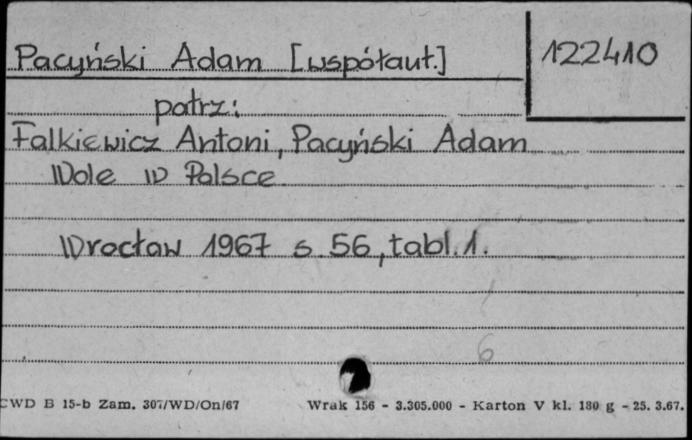 Pacyński Adam [współaut.]
122410
patrz:
Falkiewicz Antoni, Pacyński Adam
Wole w Polsce
Wrocław 1967 s. 56, tabl. 1.
6
CWD B 15-b Zam. 307/WD/On/67 Wrak 156 - 3.305.000 - Karton V kl. 180 g - 25. 3.67.